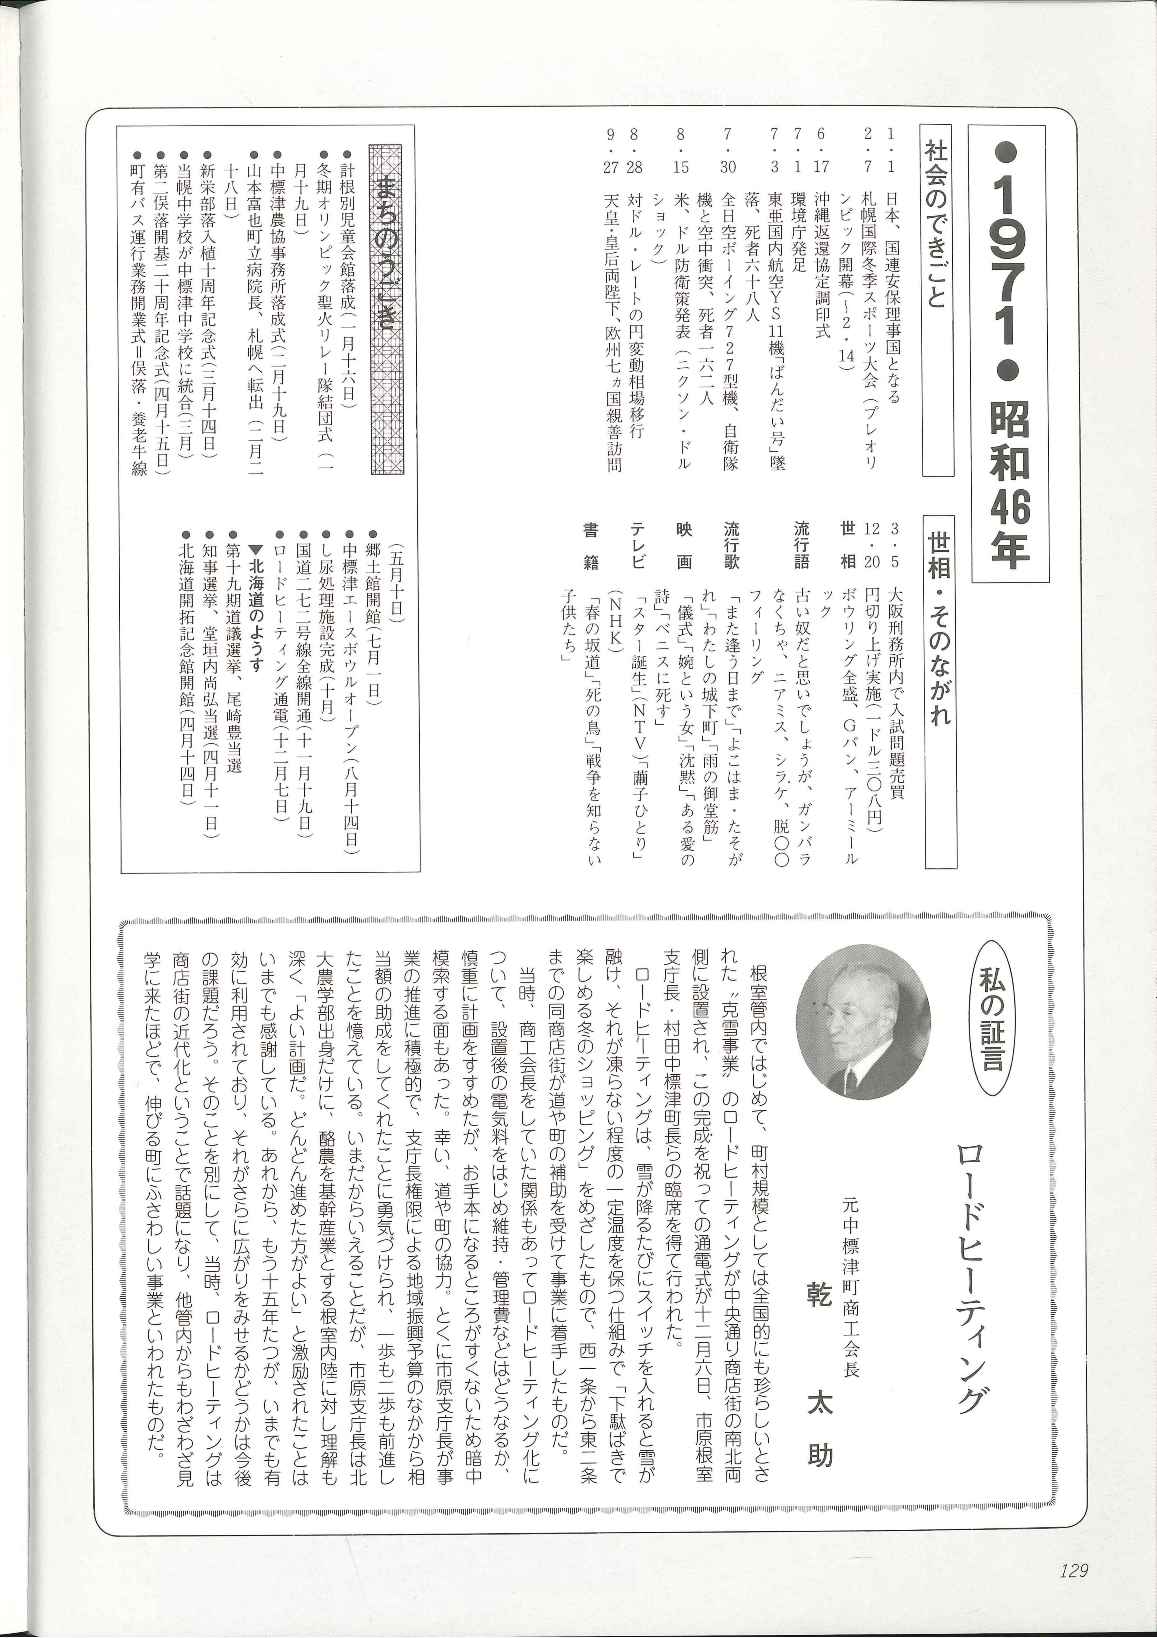 ●1971●昭和46年
社会のできごと
1・1 日本、国連安保理事国となる
2・7 札幌国際冬季スポーツ大会（プレオリ
ンピック開幕（～2・14）
6・17 沖縄返還協定調印式
7・1 環境庁発足
7・3 東亜国内航空YS11機「ばんだい号」墜
落、死者六十八人
7・30 全日空ボーイング727型機、自衛隊
機と空中衝突、死者一六二人
8・15 米、ドル防衛策発表（ニクソン・ドル
ショック）
8・28 対ドル・レートの円変動相場移行
9・27 天皇・皇后両陛下、欧州七ヵ国親善訪問
世相・そのながれ
3・5 大阪刑務所内で入試問題売買
12・20 円切り上げ実施（一ドル三〇八円）
世相 ボウリング全盛、Gパン、アーミール
ック
流行語 古い奴だと思いでしょうが、ガンバラ
なくちゃ、ニアミス、シラケ、脱〇〇
フィーリング
流行歌 「また逢う日まで」「よこはま・たそが
れ」「わたしの城下町」「雨の御堂筋」
映画 「儀式」「婉という女」「沈黙」「ある愛の
詩」「ベニスに死す」
テレビ 「スター誕生」（NTV）「繭子ひとり」
（NHK）
書籍 「春の坂道」「死の鳥」「戦争を知らない
子供たち」
まちのうごき
●計根別児童会館落成（一月十六日）
●冬期オリンピック聖火リレー隊結団式（一
月十九日）
●中標津農協事務所落成式（二月十九日）
●山本富也町立病院長、札幌へ転出（二月二
十八日）
●新栄部落入植十周年記念式（三月十四日）
●当幌中学校が中標津中学校に統合（三月）
●第二俣落開基二十周年記念式（四月十五日）
●町有バス運行業務開業式＝俣落・養老牛線
（五月十日）
●郷土館開館（七月一日）
●中標津エースボウルオープン（八月十四日）
●し尿処理施設完成（十月）
●国道二七二号線全線開通（十一月十九日）
●ロードヒーティング通電（十二月七日）
▼北海道のようす
●第十九期道議選挙、尾崎豊当選
●知事選挙、堂垣内尚弘当選（四月十一日）
●北海道開拓記念館開館（四月十四日）
私の証言
ロードヒーティング
元中標津町商工会長
乾 太助
根室管内ではじめて、町村規模としては全国的にも珍らしいとさ
れた〝克雪事業〟のロードヒーティングが中央通り商店街の南北両
側に設置され、この完成を祝っての通電式が十二月六日、市原根室
支庁長・村田中標津町長らの臨席を得て行われた。
ロードヒーティングは、雪が降るたびにスイッチを入れると雪が
融け、それが凍らない程度の一定温度を保つ仕組みで「下駄ばきで
楽しめる冬のショッピング」をめざしたもので、西一条から東二条
までの同商店街が道や町の補助を受けて事業に着手したものだ。
当時、商工会長をしていた関係もあってロードヒーティング化に
ついて、設置後の電気料をはじめ維持・管理費などはどうなるか、
慎重に計画をすすめたが、お手本になるところがすくないため暗中
模索する面もあった。幸い、道や町の協力。とくに市原支庁長が事
業の推進に積極的で、支庁長権限による地域振興予算のなかから相
当額の助成をしてくれたことに勇気づけられ、一歩も二歩も前進し
たことを憶えている。いまだからいえることだが、市原支庁長は北
大農学部出身だけに、酪農を基幹産業とする根室内陸に対し理解も
深く「よい計画だ。どんどん進めた方がよい」と激励されたことは
いまでも感謝している。あれから、もう十五年たつが、いまでも有
効に利用されており、それがさらに広がりをみせるかどうかは今後
の課題だろう。そのことを別にして、当時、ロードヒーティングは
商店街の近代化ということで話題になり、他管内からもわざわざ見
学に来たほどで、伸びる町にふさわしい事業といわれたものだ。
129